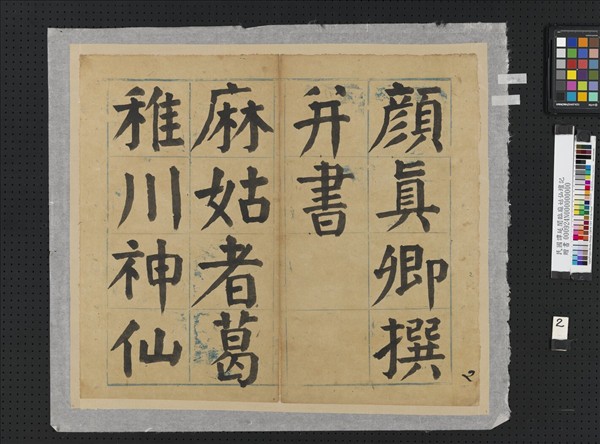 顏眞卿撰
并書
麻姑者葛
稚川神仙
2